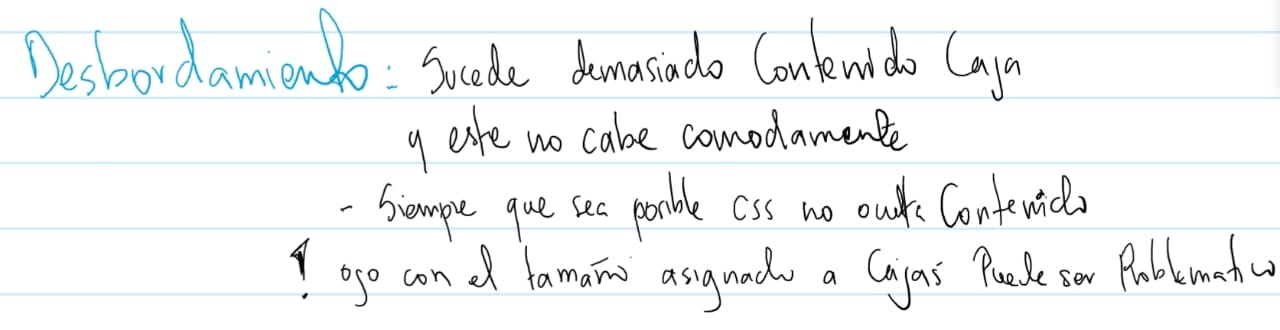 Desbordamiento: Sucede demasiado Contenido Caja
y este no cabe comodamente
- Siempre que sea posible CSS no oculta Contenido
! ojo con el tamaño asignado a Cajas Puede ser Problematico